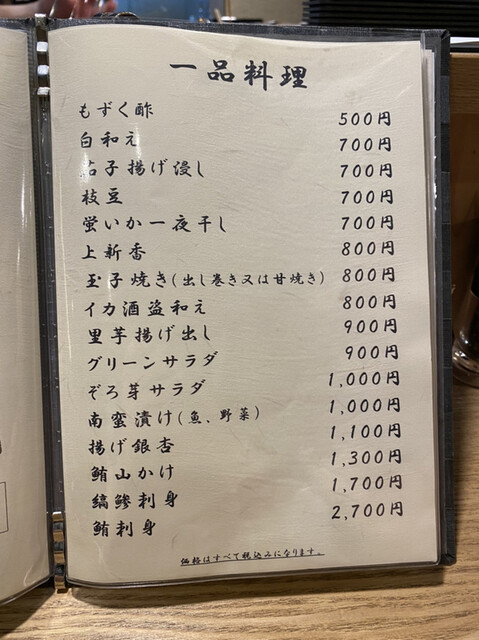 一品料理
もずく酢 500円
白和え 700円
茄子揚げ浸し 700円
枝豆 700円
蛍いか一夜干し 700円
上新香 800円
玉子焼き(出し巻き又は甘焼き) 800円
イカ酒盗和え 800円
里芋揚げ出し 900円
グリーンサラダ 900円
ぞろ芽サラダ 1,000円
南蛮漬け(魚、野菜) 1,000円
揚げ銀杏 1,100円
鮪山かけ 1,300円
縞鯵刺身 1,700円
鮪刺身 2,700円
価格はすべて税込みになります。